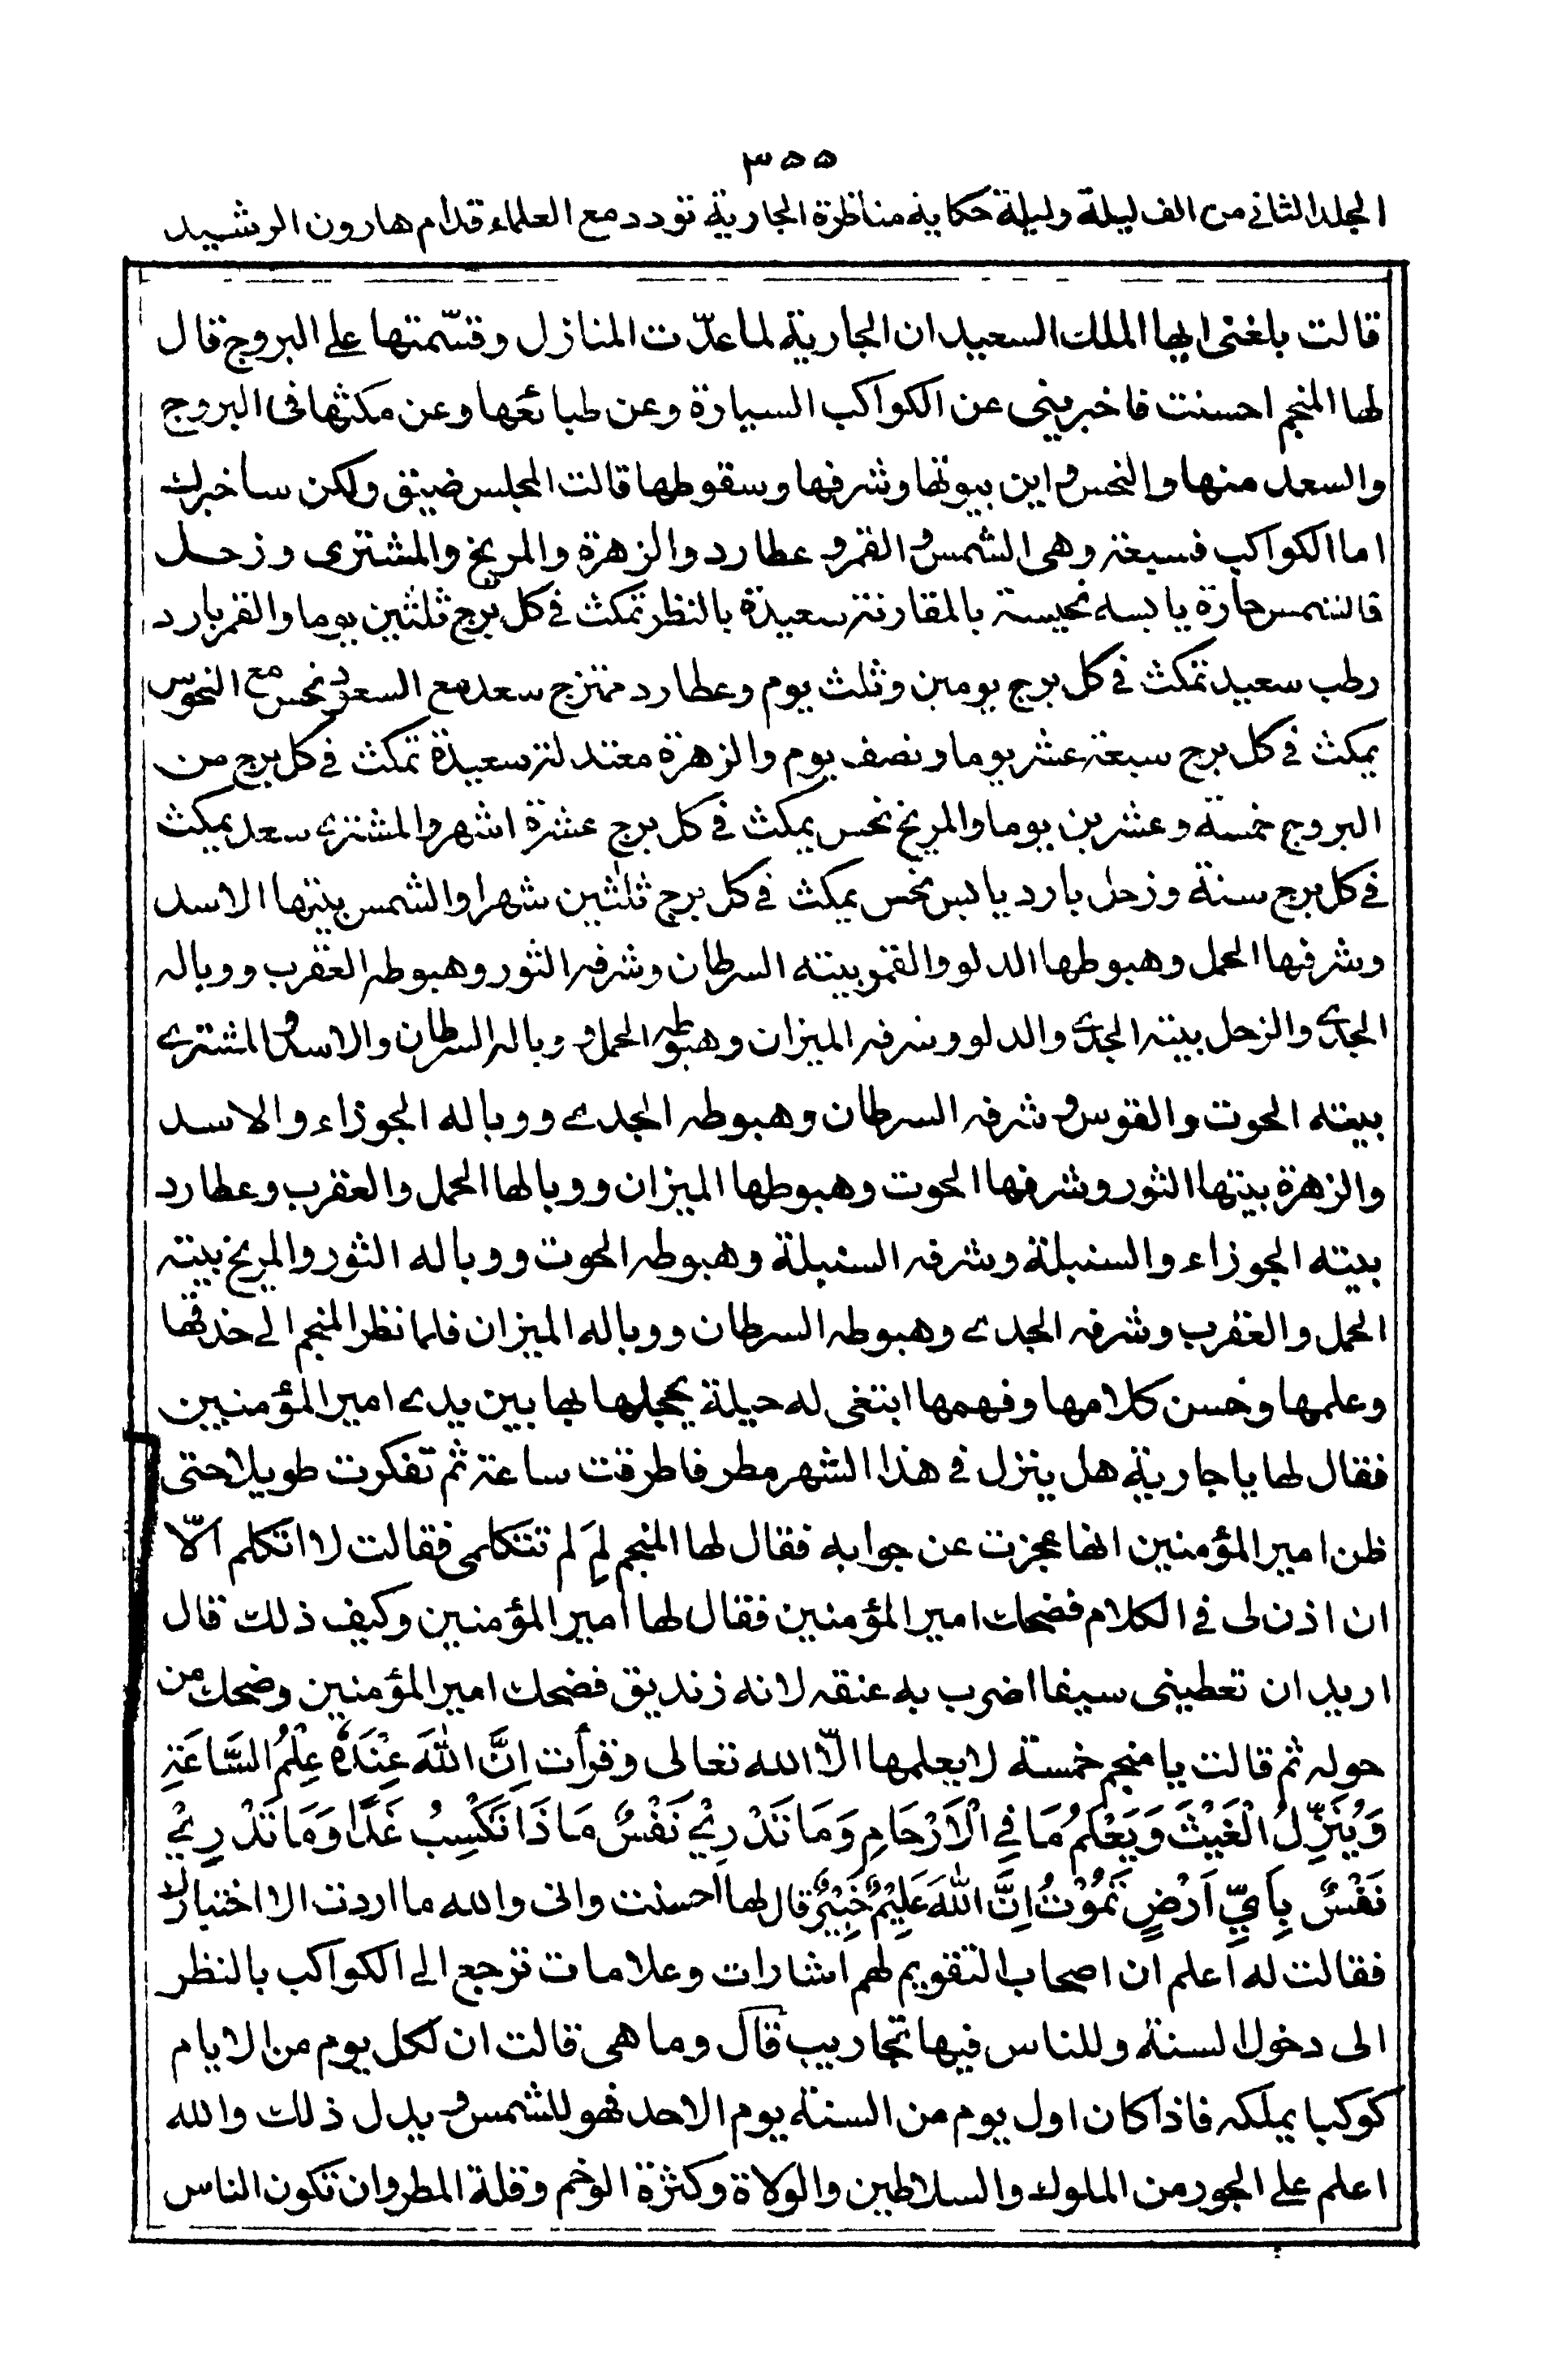 ٣٥٥
المجلد الثاني من الف ليلة وليلة حكاية مناظرة الجارية تودد مع العلماء قدام هارون الرشيد
قالت بلغنى ايها الملك السعيد ان الجارية لما عدّت المنازل وقسّمتها على البروج قال
لها المنجم احسنت فاخبرينى عن الكواكب السيارة وعن طبائعها وعن مكثها فى البروج
والسعد منها والنحس واين بيوتها وشرفها وسقوطها قالت المجلس ضيق ولكن ساخبرك
اما الكواكب فسبعة وهى الشمس والقمر و عطارد والزهرة والمريخ والمشترى وزحل
فالشمس حارة يابسة نحيسة بالمقارنة سعيدة بالنظر تمكث فى كل برج ثلثين يوما والقمر بارد
رطب سعيد تمكث فى كل برج يومين وثلث يوم وعطارد ممتزج سعد مع السعود نحس مع النحوس
يمكث فى كل برج سبعة عشر يوما ونصف يوم والزهرة معتدلة سعيدة تمكث فى كل برج من
البروج خمسة وعشرين يوما والمريخ نحس يمكث فى كل برج عشرة اشهر والمشترى سعد يمكث
فى كل برج سنة وزحل بارد يابس نحس يمكث فى كل برج ثلثين شهرا والشمس بيتها الاسد
وشرفها الحمل وهبوطها الدلو والقمر بيته السرطان وشرفه الثور وهبوطه العقرب ووباله
الجدى والزحل بيته الجدى والدلو وشرفه الميزان وهبوطه الحمل و وباله السرطان والاسد والمشترى
بيته الحوت والقوس و شرفه السرطان وهبوطه الجدى ووباله الجوزاء والاسد
والزهرة بيتها الثور وشرفها الحوت وهبوطها الميزان ووبالها الحمل والعقرب وعطارد
بيته الجوزاء والسنبلة وشرفه السنبلة وهبوطه الحوت ووباله الثور والمريخ بيته
الحمل والعقرب وشرفه الجدى وهبوطه السرطان ووباله الميزان فلما نظر المنجم الى حذقها
وعلمها وحسن كلامها وفهمها ابتغى له حيلة يخجلها بها بين يدى امير المؤمنين
فقال لها يا جارية هل ينزل فى هذا الشهر مطر فاطرقت ساعة ثم تفكرت طويلا حتى
ظن امير المؤمنين انها عجزت عن جوابه فقال لها المنجم لِمَ لم تتكلمى فقالت لا اتكلم الّا
ان اذن لى فى الكلام فضحك امير المؤمنين فقال لها امير المؤمنين وكيف ذلك قال
اريد ان تعطينى سيفا اضرب به عنقه لانه زنديق فضحك امير المؤمنين وضحك من
حوله ثم قالت يا منجم خمسة لا يعلمها الّا الله تعالى وقرأت اِنَّ اللّٰهَ عِنْدَهُ عِلْمُ السَّاعَةِ
وَيُنَزِّلُ الْغَيْثَ وَيَعْلَمُ مَا فِي الْاَرْحَامِ وَمَا تَدْرِيْ نَفْسٌ مَاذَا تَكْسِبُ غَدًا وَمَا تَدْرِيْ
نَفْسٌ بِاَيِّ اَرْضٍ تَمُوْتُ اِنَّ اللّٰهَ عَلِيْمٌ خَبِيْرٌ قال لها احسنت وانى والله ما اردت الا اختبارك
فقالت له اعلم ان اصحاب التقويم لهم اشارات وعلامات ترجع الى الكواكب بالنظر
الى دخول السنة وللناس فيها تجاريب قال وما هى قالت ان لكل يوم من الايام
كوكبا يملكه فاذا كان اول يوم من السنة يوم الاحد فهو للشمس و يدل ذلك والله
اعلم على الجور من الملوك والسلاطين والولاة وكثرة الوخم وقلة المطر وان تكون الناس